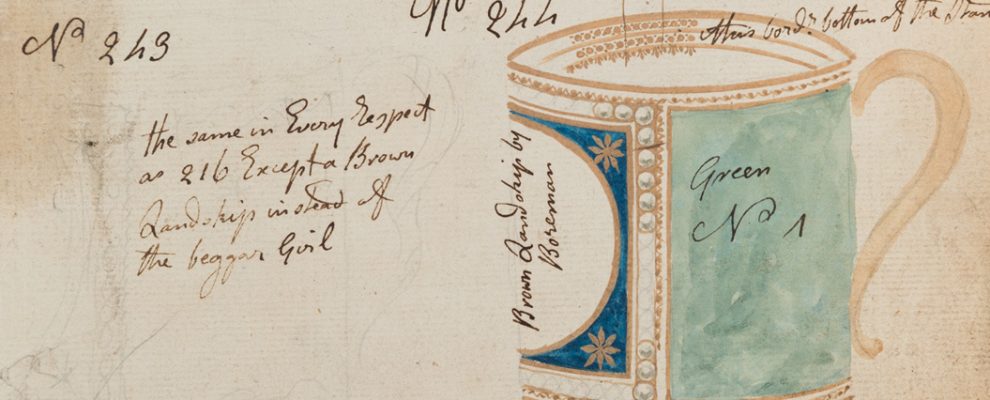 No 243
the same in Every Respect
as 216 Except a Brown
Landskip instead of
the beggar Girl
No 244
this bord.r bottom of the
Brown Landskip by
Boreman
Green
No 1